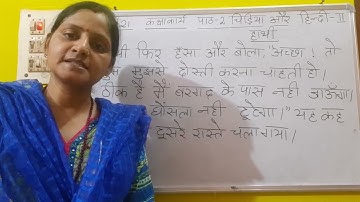 कक्षाकार्य पाठ-2 चिड़िया और हिन्दी-II
हाथी
फिर हँसा और बोला, "अच्छा! तो
मुझसे दोस्ती करना चाहती हो।
ठीक है मैं बरगद के पास नहीं जाऊँगा।
घोंसला नहीं टूटेगा।" यह कह
दूसरे रास्ते चला गया।